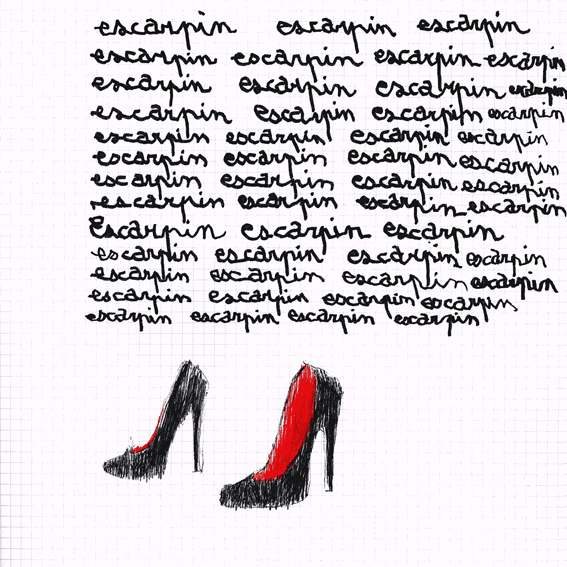 escarpin escarpin escarpin
escarpin escarpin escarpin escarpin
escarpin escarpin escarpin escarpin
escarpin escarpin escarpin escarpin
escarpin escarpin escarpin escarpin
escarpin escarpin escarpin escarpin
escarpin escarpin escarpin escarpin
escarpin escarpin escarpin escarpin
Escarpin escarpin escarpin
escarpin escarpin escarpin escarpin
escarpin escarpin escarpin escarpin
escarpin escarpin escarpin escarpin
escarpin escarpin escarpin escarpin